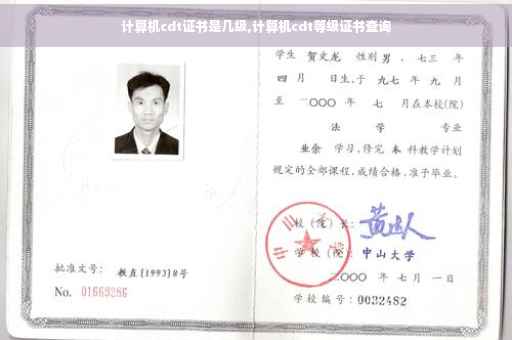 计算机cdt证书是几级,计算机cdt等级证书查询
学生 贺文龙 性别 男 、七三 年
四 月 日生,于 九七 年 九 月
至 二〇〇〇 年 七 月在本校(院)
法 学 专业
业余 学习,修完 本 科教学计划
规定的全部课程,成绩合格,准予毕业。
校(院)长:
学校(院): 中山大学
二〇〇〇 年 七 月 一 日
批准文号: 教直[1993]8号
No. 01663286
学校编号: 0032482